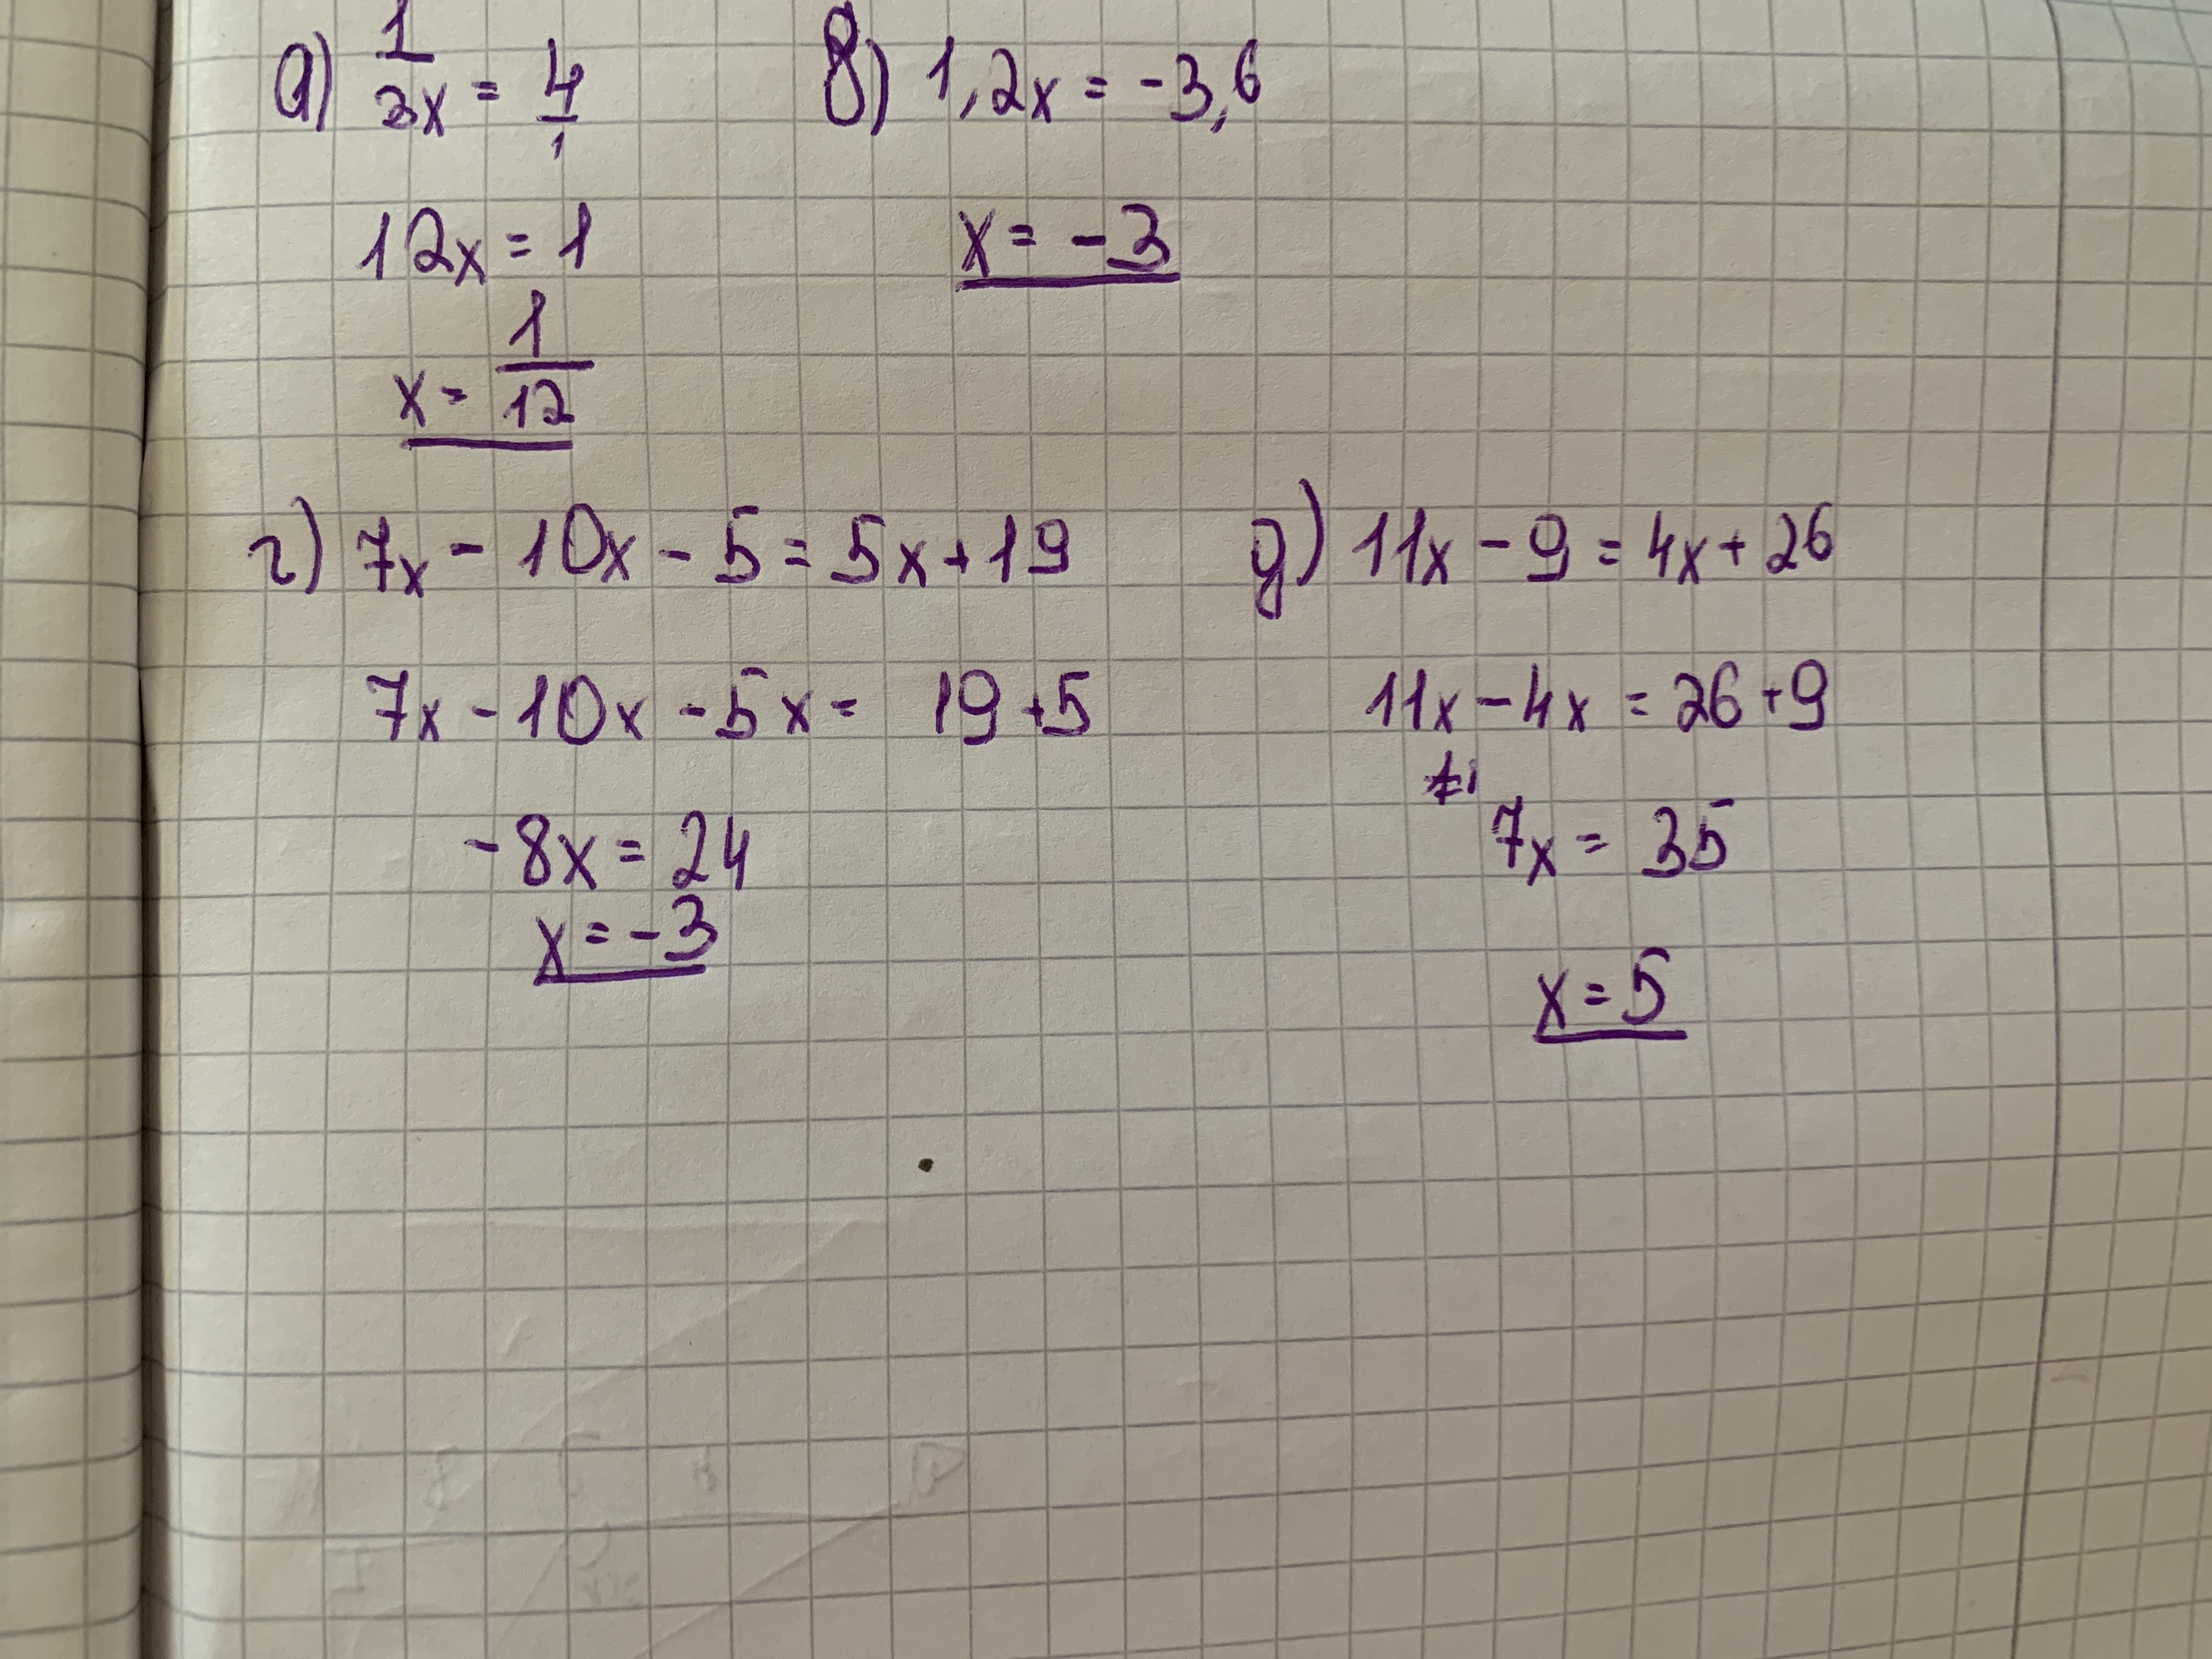 а) 1/3x = 4/1
12x = 1
x = 1/12
в) 1,2x = -3,6
x = -3
г) 7x - 10x - 5 = 5x + 19
7x - 10x - 5x = 19 + 5
-8x = 24
x = -3
д) 11x - 9 = 4x + 26
11x - 4x = 26 + 9
7x = 35
x = 5